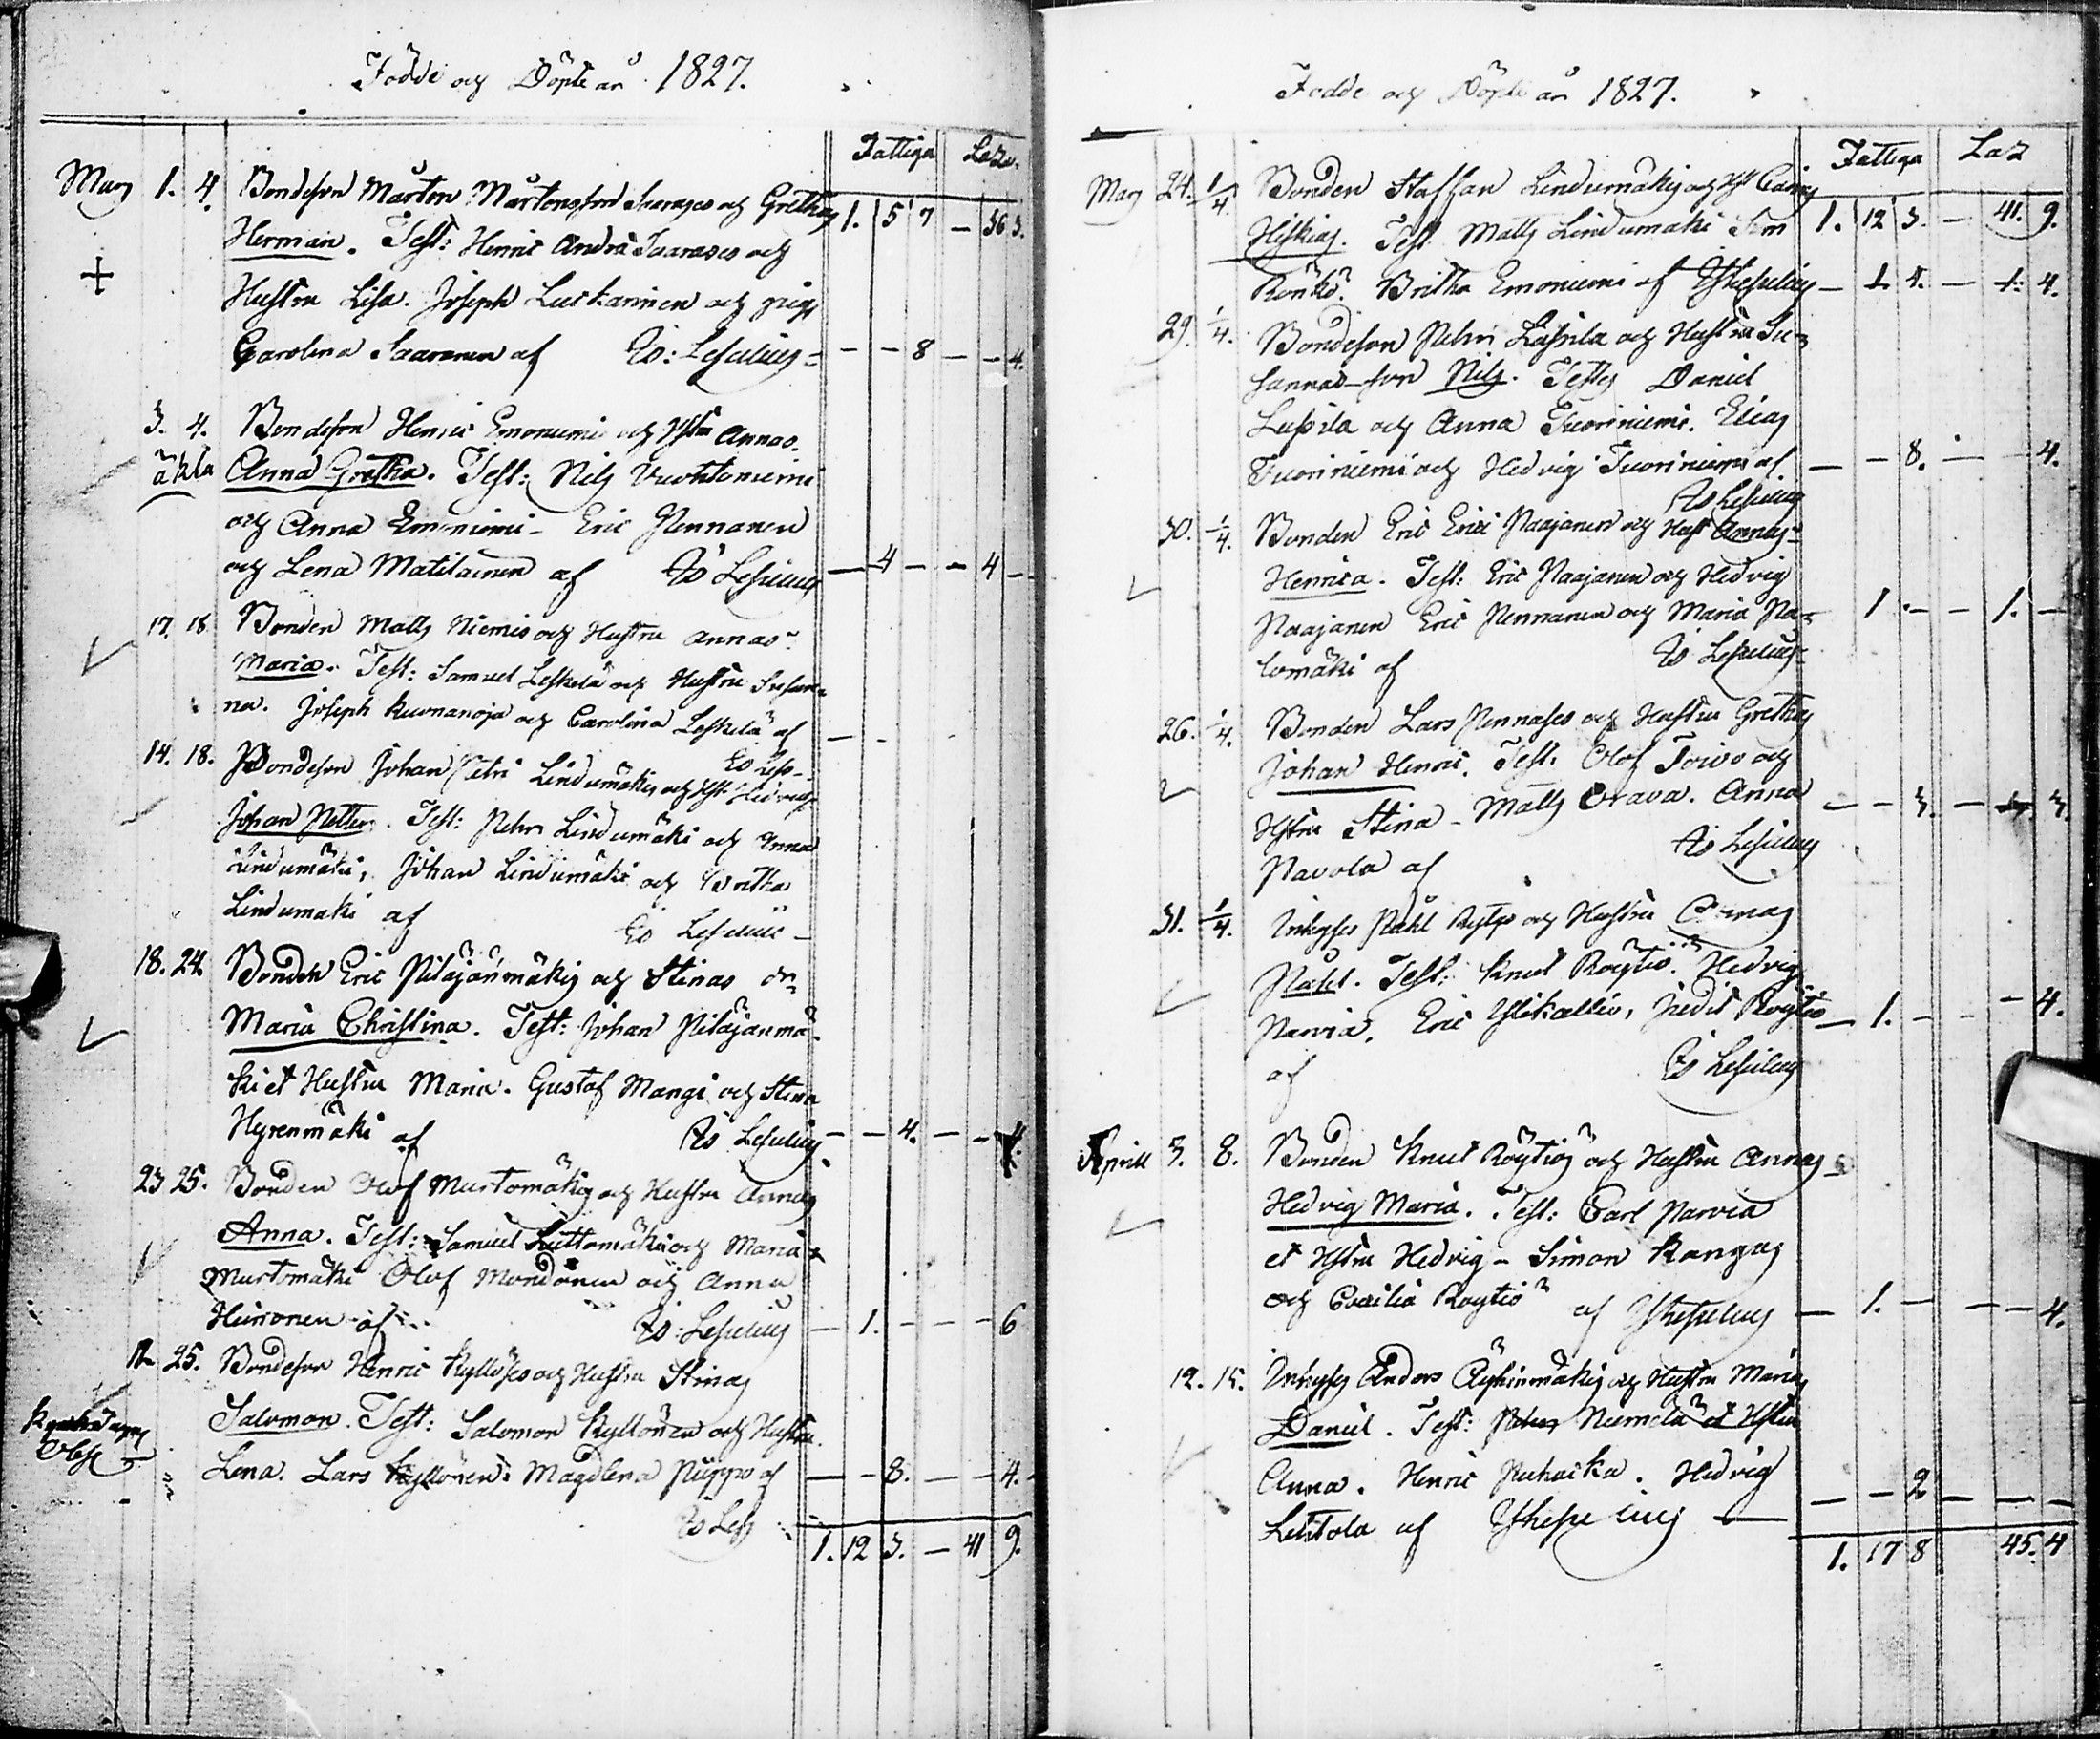 Födde och Döpte år 1827.
Fattiga Laza.
Mars 1. 4. Bondeson Mårten Mårtensson Saarases och Grethas 1. 5 7 – 36 5.
Herman. Test: Henric Andr: Saarases och
+
Hustru Lisa. Joseph Luckarinen och pig:
Carolina Saaranen af Es: Lesulius – – 8 – – 4.
3. 4. Bondeson Henric Emoniemis och Hstru Annas
äkta Anna Gretha. Test: Nils Vuohtoniemi
och Anna Emoniemi – Eric Pennanen
och Lena Matilainen af Es Lesulius – 4 – – 4 –
17. 18. Bonden Matts Niemis och Hustru Annas
Maria. Test: Samuel Leskelä och Hustru Susan-
na. Joseph Kuonanoja och Carolina Leskelä af
Es Les–
14. 18. Bondeson Johan Petri Lindumäkis och Hst: Hedvigs
Johan Petter. Test: Pehr Lindumäki och Anna
Lindumäki, Johan Lindumäki och Britha
Lindumäki af Es Lesulius –
18. 24. Bonden Eric Pitäjänmäkis och Stinas dr
Maria Christina. Test: Johan Pitäjänmä-
ki et Hustru Maria. Gustaf Mangi och Stina
Hyrenmäki af Es Lesulius – – 4. – – 4.
23 25. Bonden Olof Murtomäkis och Hustru Annas
Anna. Test: Samuel Luttomäki och Maria
Murtomäki Olof Mondonen och Anna
Huironen af Es: Lesulius – 1. – – – 6
12 25. Bondeson Henric Kyllöses och Hustru Stinas
Salomon. Test: Salomon Kyllönen och Hustru
Lena. Lars Kyllönen. Magdlena Piippo af – – 8. – – 4.
Es Les
1. 12 3. – 41 9.
Födde och Döpte år 1827.
Fattiga Laz
Mars 24. 1/4. Bonden Staffan Lindumäkis och Hst Cajsas
Hiskias. Test: Matts Lindumäki Sim 1. 12 3. – 41. 9.
Rönkö. Britha Emoniemi af Hlesulius – 1. 4. – 1. 4.
29. 1/4. Bondeson Pehr Lassila och Hustru Su-
sannas son Nils. Testes Daniel
Lassila och Anna Tuoriniemi. Elias
Tuoriniemi och Hedvig Tuoriniemi af – – 8. – – 4.
Es Lesulius
30. 1/4. Bonden Eric Erici Paajanen och Hust Annas
Henrica. Test: Eric Paajanen och Hedvig
Paajanen Eric Pennanen och Maria Pa- 1. – – 1. –
lomäki af Es Lesulius
26. 1/4. Bonden Lars Pennases och Hustru Grethas
Johan Henric. Test: Olof Toivo och
Hstru Stina – Matts Orava. Anna – – 3. – 3.
Pavola af Es Lesulius
31. 1/4. Inhyses Påhl och Hustru Annas
Påhl. Test: Knut Röytiö. Hedvig
Parvia. Eric Ylikallio, Judit Röytiö – 1. – – 4.
af Es Lesulius
Aprill 3. 8. Bonden Knut Röytiös och Hustru Annas
Hedvig Maria. Test: Carl Parvia
et Hstru Hedvig – Simon Kangas
och Caecilia Röytiö af Hlesulius – 1. – – – 4.
12. 15. Inhyses Anders Äyhinmäkis och Hustru Marias
Daniel. Test: Pehr Niemelä et Hstru
Anna. Henric Puhacka. Hedvig
Lehtola af Hlesulius – – – 2 – – –
1. 17 8 45. 4